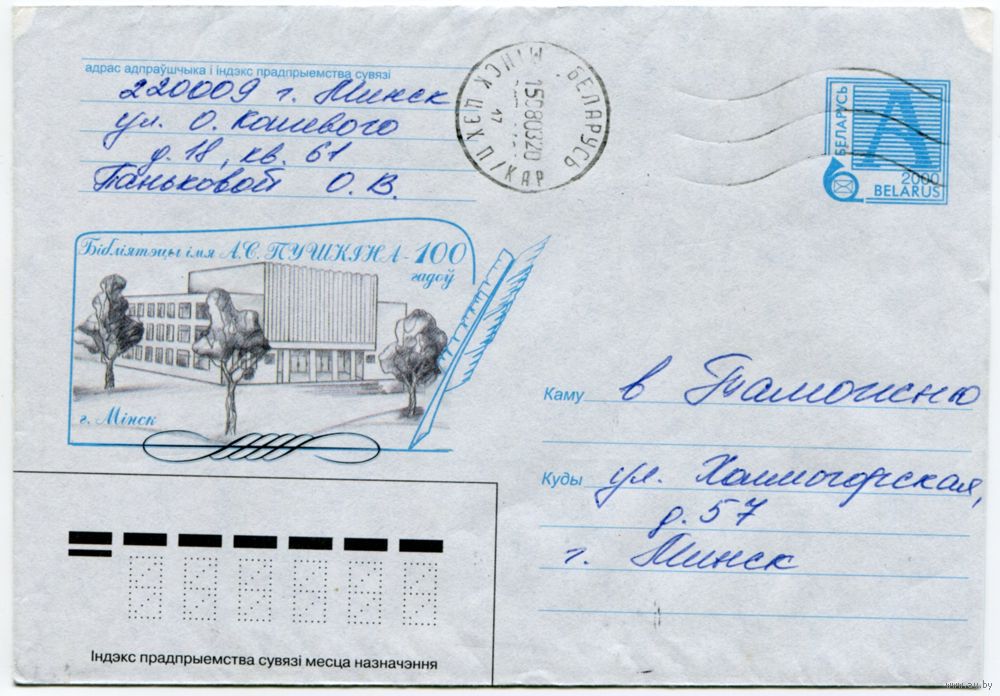 адрас адпраўшчыка і індэкс прадпрыемства сувязі
220009 г. Минск
ул. О. Кошевого
д. 18, кв. 61
Паньковой О. В.
БЕЛАРУСЬ
МІНСК ЦЭХ П/КАР
15080320
17
БЕЛАРУСЬ
А
2000
BELARUS
Бібліятэцы імя А.С. ПУШКІНА - 100
гадоў
г. Мінск
Каму в Таможню
Куды ул. Холмогорская,
д. 57
г. Минск
Індэкс прадпрыемства сувязі месца назначэння
www.ay.by